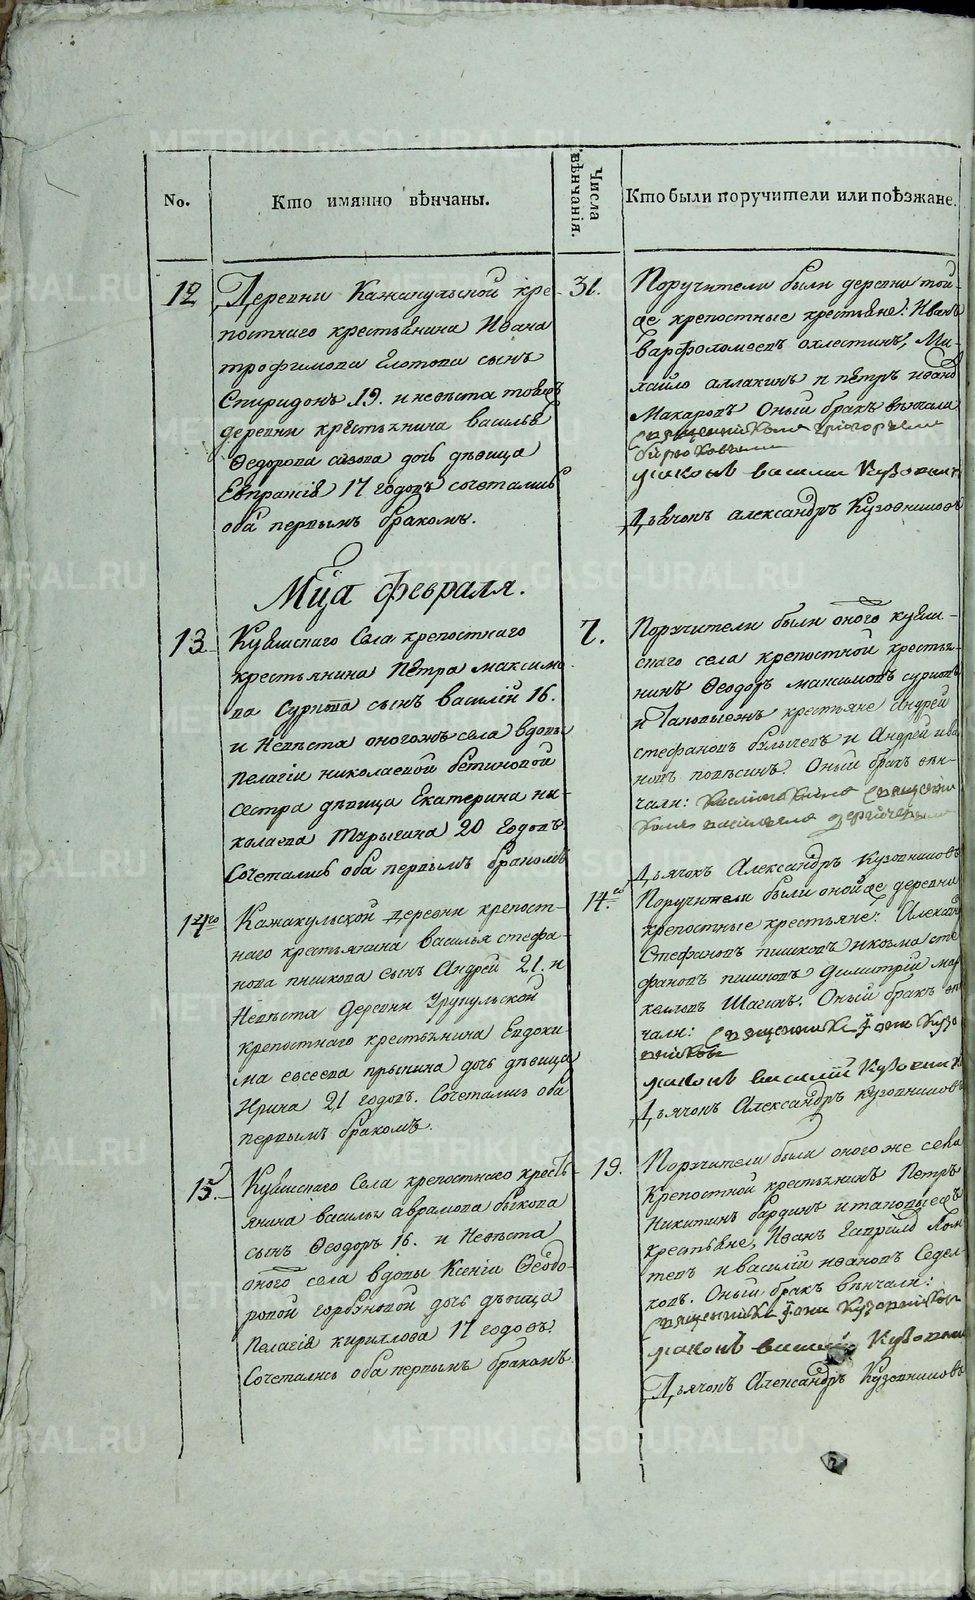 No.
Кто имянно вѣнчаны.
Числа вѣнчанія.
Кто были поручители или поѣзжане.
12
Деревни Кажакульской кре-
постнаго крестьянина Ивана
трофимова сынъ
Спиридонъ 19. и невѣста тояжъ
деревни крестьянина василья
Ѳедорова дочь дѣвица
Евпраксія 17 годовъ сочетались
оба первымъ бракомъ.
31.
Поручители были деревни той
же крепостные крестьяне: Иванъ
варфоломеевъ охлестинъ, Ми-
хайло аллакинъ и петръ ивано
Макаровъ Оный бракъ вѣнчали
священникомъ григорьемъ
бирюковымъ
диаконъ василий Кузовник
Дьячокъ александръ Кузовниковъ
Мца февраля.
13.
Кувшскаго Села крепостнаго
крестьянина Петра максимо
ва сурнова сынъ василій 16.
и Невѣста оногожъ села вдовы
пелагіи николаевой
сестра дѣвица Екатерина ни-
колаева 20 годовъ.
Сочетались оба первымъ бракомъ
7.
Поручители были оного кувш-
скаго села крепостной крестья-
нинъ Ѳеодоръ максимовъ сурновъ
и таковыежъ крестьяне Андрей
стефановъ булычевъ и Андрей ива
новъ Оный бракъ вѣн-
чали: священни
комъ василиемъ
Дьячокъ Александръ Кузовниковъ
14
Кажакульской деревни крепост-
наго крестьянина василья стефа-
нова пшикова сынъ Андрей 21. и
Невѣста деревни Урукульской
крепостнаго крестьянина Евдоки
ма евсеева дочь дѣвица
Ирина 21 годовъ. Сочетались оба
первымъ бракомъ.
14.
Поручители были оной же деревни
крепостные крестьяне: Алексѣй
Стефановъ пшиковъ и козма сте
фановъ пшиковъ Димитрій мар
келловъ Шагинъ. Оный бракъ вѣн
чали: священникъ Іоан Кузо
вниковъ
диаконъ василій Кузовник
Дьячокъ Александръ Кузовниковъ
15.
Кувшскаго Села крепостнаго кресть-
янина василья аврамова быкова
сынъ Ѳеодоръ 16. и Невѣста
оного села вдовы Ксеніи Ѳеодо-
ровой горбуновой дочь дѣвица
Пелагія кириллова 17 годовъ.
Сочетались оба первымъ бракомъ.
19.
Поручители были оного же села
Крепостной крестьянинъ Петръ
Никитинъ бардинъ и таковыежъ
крестьяне, Иванъ Гаврило Лом
тевъ и василій ивановъ Седел-
ковъ. Оный бракъ вѣнчали:
священникъ Іоан Кузовников
диаконъ василій Кузовник
Дьячокъ Александръ Кузовниковъ
METRIKI.GASO-URAL.RU